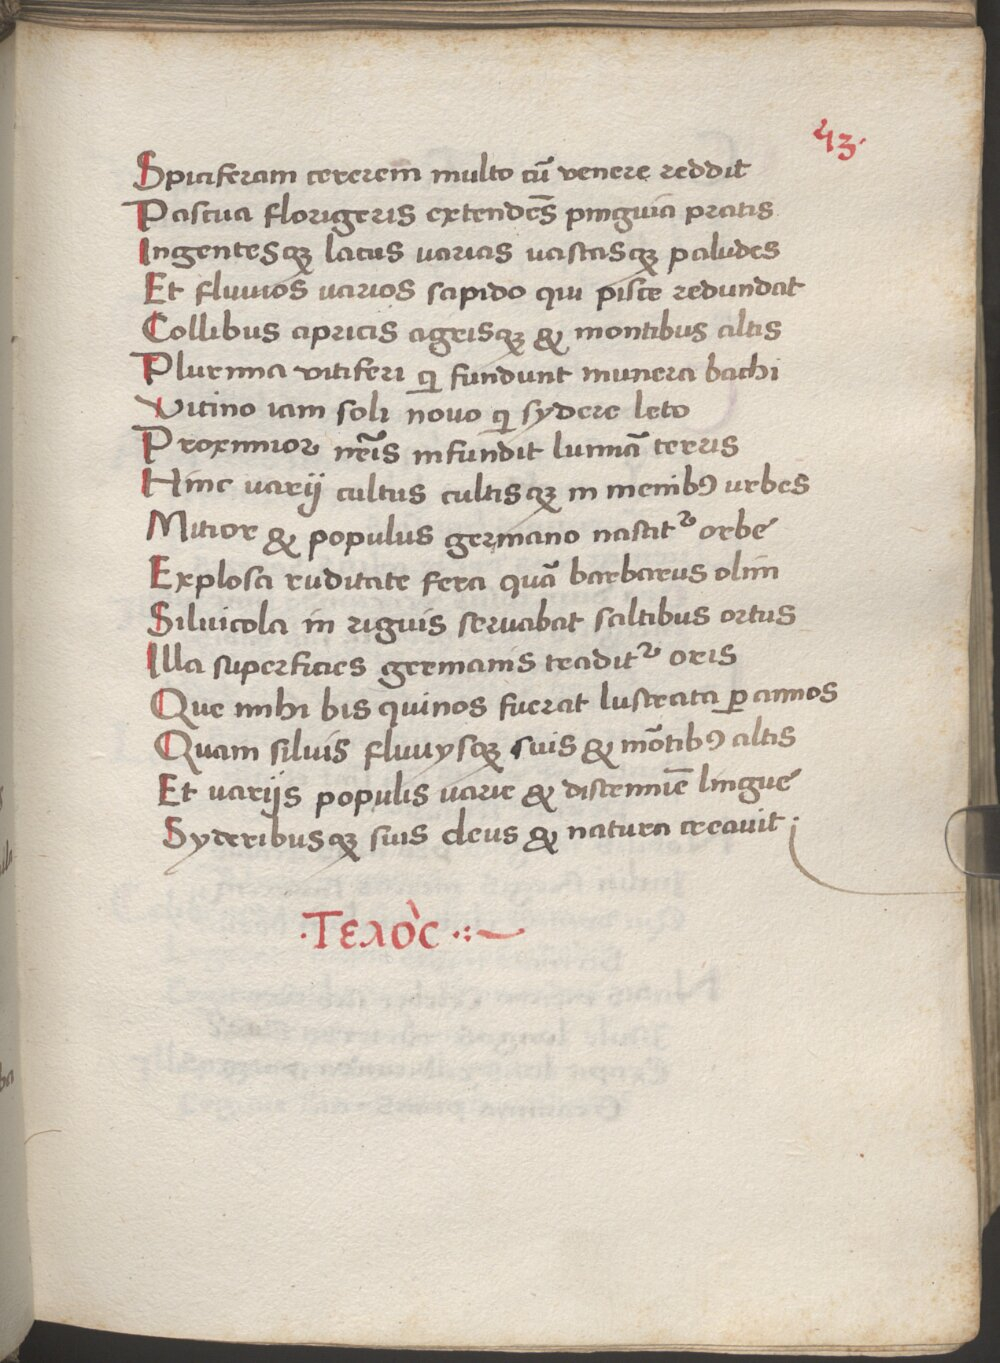 43.
Spiciferam cererem multo cū venere reddit
Pascua florigeris extendēs pinguia pratis
Ingentesqꝫ lacus varias vastasqꝫ paludes
Et fluuios varios sapido qui pisce redundāt
Collibus apricis agrisqꝫ & montibus altis
Plurima vitiferi qi fundunt munera bachi
Vicino iam soli nouo qi sydere leto
Proximior nr̄is infundit luminā terris
Hinc varij cultus cultisqꝫ in menibꝰ urbes
Mitior & populus germano nascit᷑ orbe
Explosa ruditate fera quā barbarus olim
Siluicola in riguis seruabat saltibus ortus
Illa superficies germanis tradit᷑ oris
Que mihi bis quinos fuerat lustrata ꝑ annos
Quam siluis fluuijsqꝫ suis & mōtibꝰ altis
Et varijs populis varie & discrimīe lingue
Syderibusqꝫ suis deus & natura creauit.
·Τελὸς ·:~